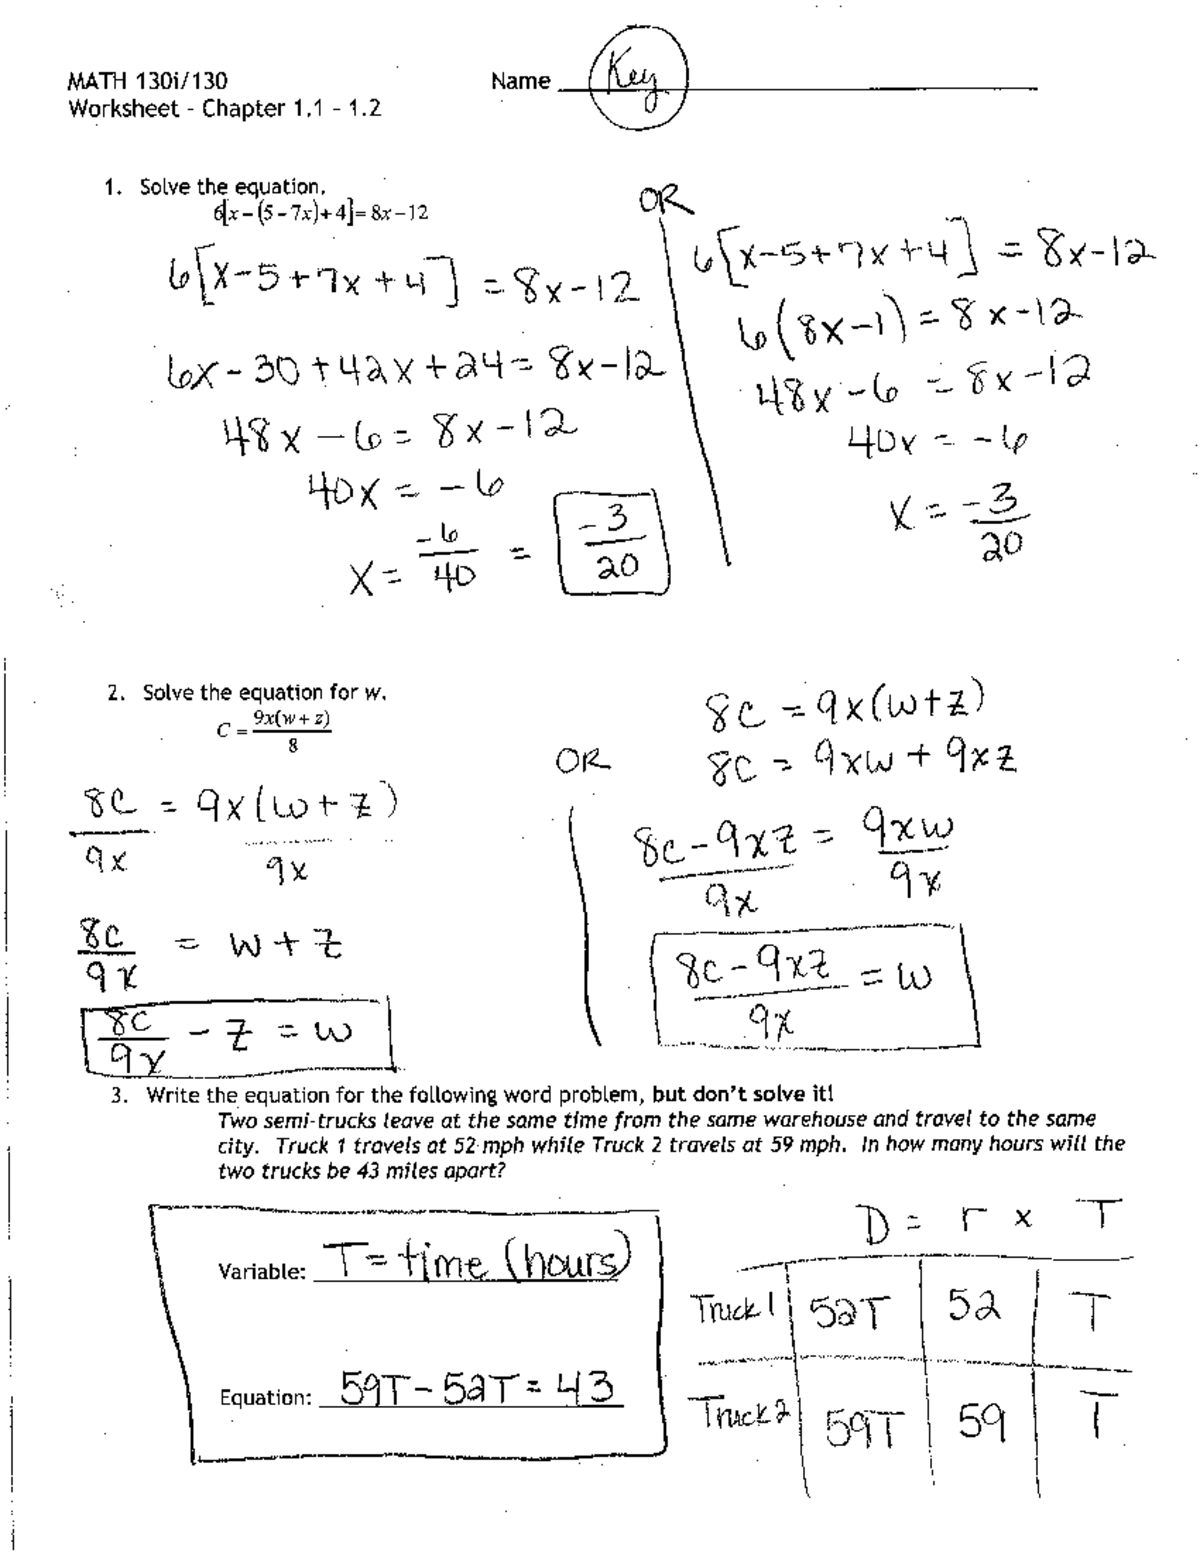 MATH 130i/130
Name Key
Worksheet - Chapter 1.1 - 1.2
1. Solve the equation.
6[x-(5-7x)+4]=8x-12
6[x-5+7x+4] = 8x-12
6x-30+42x+24=8x-12
48x-6=8x-12
40x=-6
x= -6/40 = -3/20
OR
6[x-5+7x+4] = 8x-12
6(8x-1)=8x-12
48x-6=8x-12
40x=-6
x=-3/20
2. Solve the equation for w.
C=9x(w+z)/8
8C = 9x(w+z)
9x 9x
8C/9x = w+z
8C/9x - z = w
OR
8C = 9x(w+z)
8C = 9xw + 9xz
8C-9xz = 9xw
9x 9x
8C-9xz/9x = w
3. Write the equation for the following word problem, but don't solve it!
Two semi-trucks leave at the same time from the same warehouse and travel to the same
city. Truck 1 travels at 52 mph while Truck 2 travels at 59 mph. In how many hours will the
two trucks be 43 miles apart?
Variable: T=time (hours)
Equation: 59T-52T=43
D = r x T
Truck 1 52T 52 T
Truck 2 59T 59 T